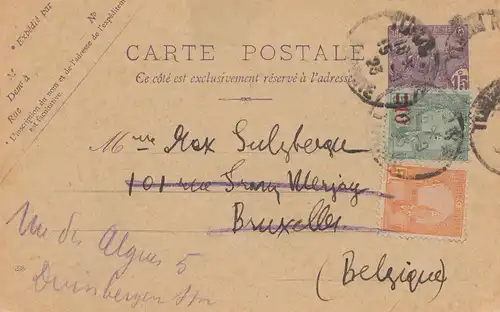 * Expédié par
N°
M
Deme à
Rue
* L'inscription du nom et de l'adresse de l'expéditeur
est facultative.
CARTE POSTALE
Ce côté est exclusivement réservé à l'adresse.
15
Mme Max Sulzberger
101 rue Franz Merjay
Bruxelles
(Belgique)
Rue des Algues 5
Duinbergen s/m